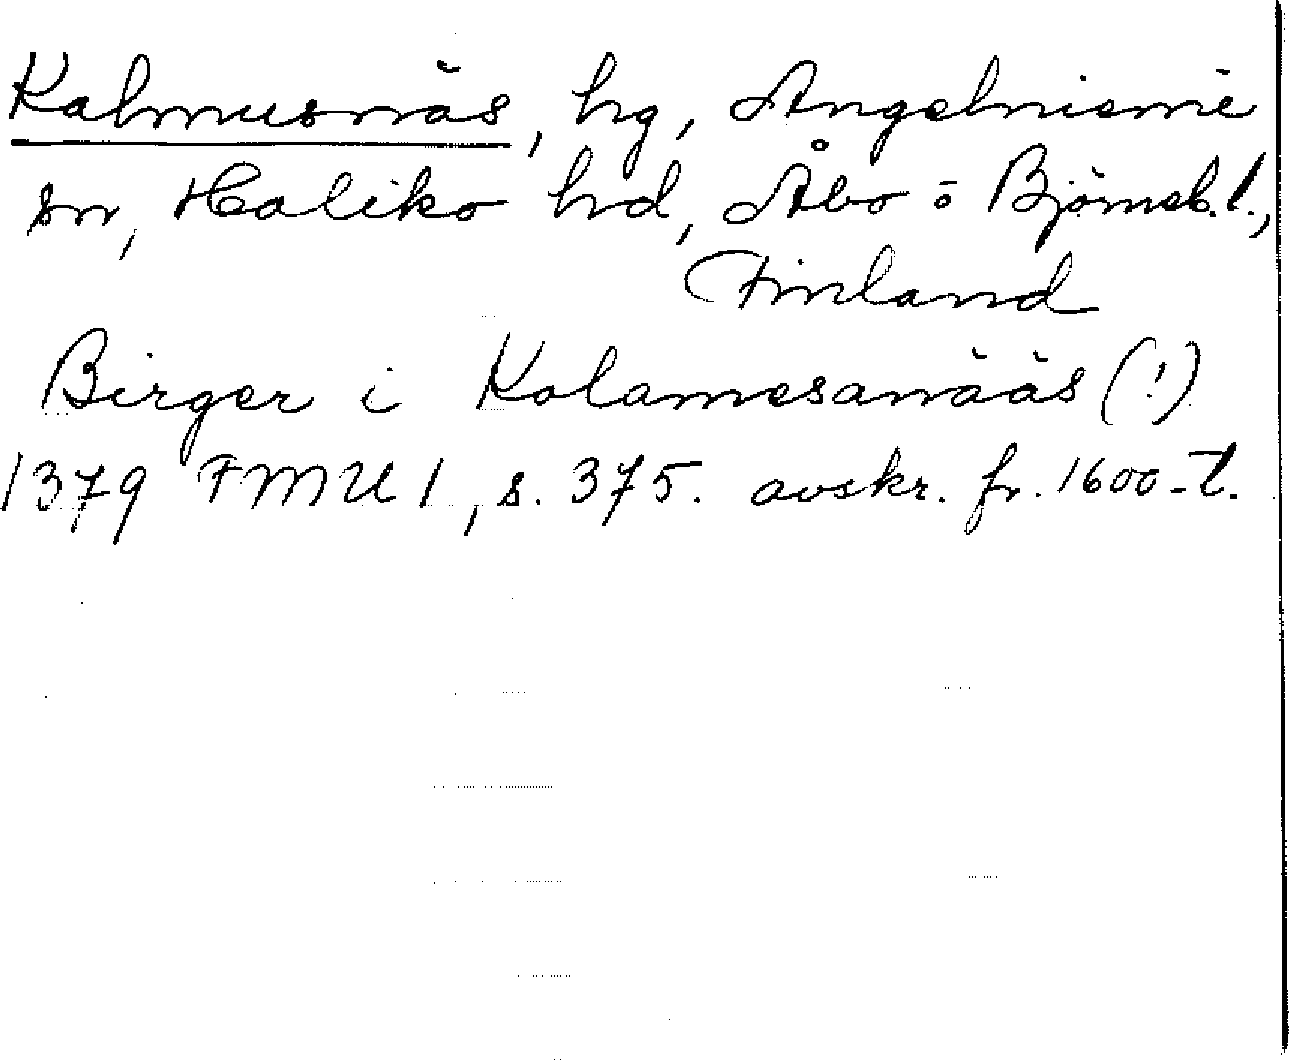 Kalmusnäs, hg, Angelniemi
sn, Haliko hd, Åbo o Björneb. l.,
Finland
Birger i Kolamesanääs (!)
1379 FMU 1, s. 375. avskr. fr. 1600-t.